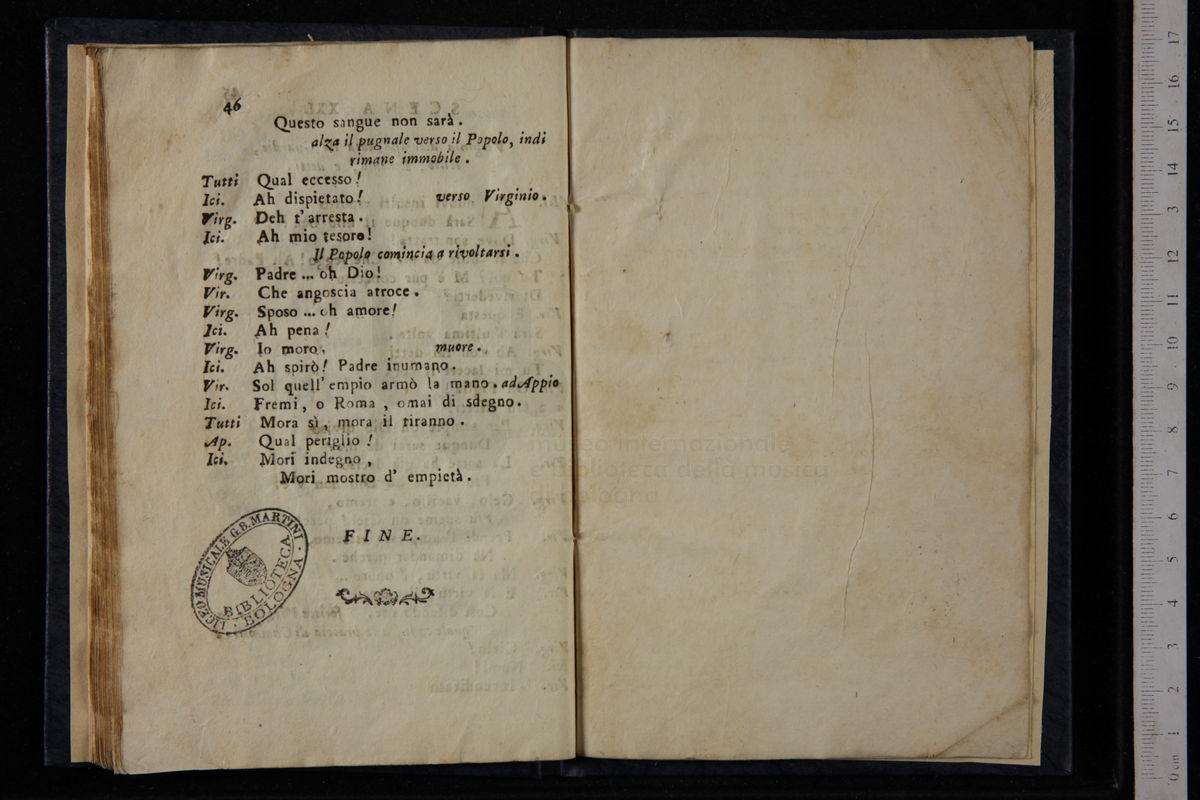 46
Questo sangue non sarà.
alza il pugnale verso il Popolo, indi
rimane immobile.
Tutti Qual eccesso!
Ici. Ah dispietato! verso Virginio.
Virg. Deh t'arresta.
Ici. Ah mio tesoro!
Il Popolo comincia a rivoltarsi.
Virg. Padre ... oh Dio!
Vir. Che angoscia atroce.
Virg. Sposo ... oh amore!
Ici. Ah pena!
Virg. Io moro. muore.
Ici. Ah spirò! Padre inumano.
Vir. Sol quell'empio armò la mano. ad Appio
Ici. Fremi, o Roma, omai di sdegno.
Tutti Mora sì, mora il tiranno.
Ap. Qual periglio!
Ici. Mori indegno,
Mori mostro d'empietà.
FINE.
LICEO MUSICALE G.B. MARTINI
BIBLIOTECA
· BOLOGNA ·
museo internazionale
e biblioteca della musica
di bologna
0 cm 1 2 3 4 5 6 7 8 9 10 11 12 13 14 15 16 17